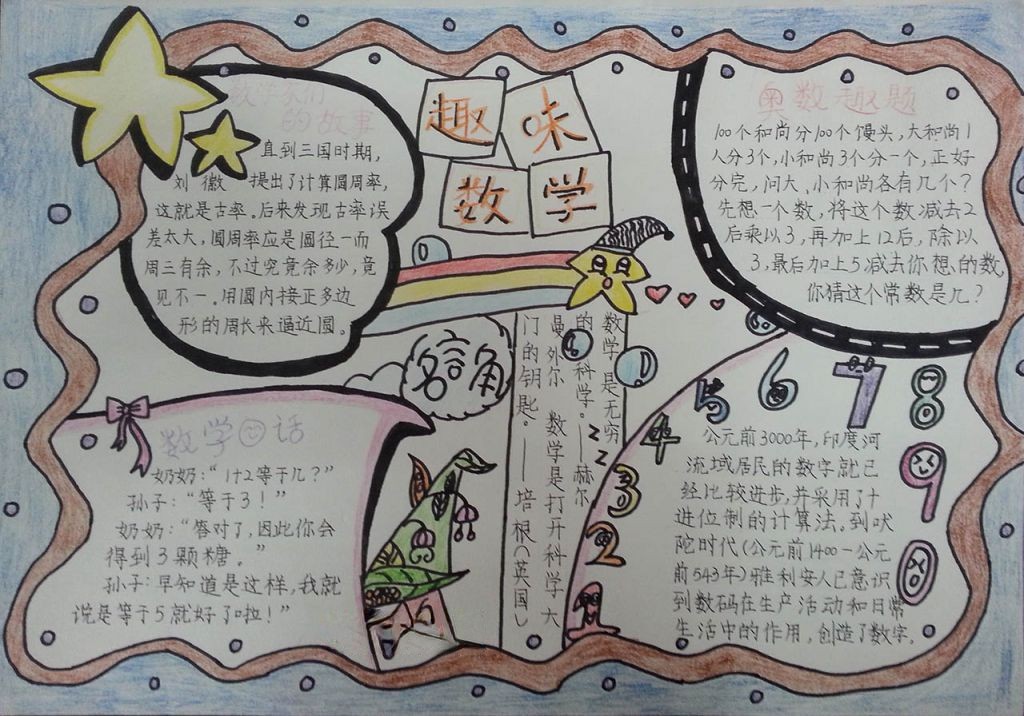 趣味
数学
数学家们
的故事
直到三国时期，
刘徽 提出了计算圆周率，
这就是古率。后来发现古率误
差太大，圆周率应是圆径一而
周三有余，不过究竟余多少，竟
见不一。用圆内接正多边
形的周长来逼近圆。
奥数趣题
100个和尚分100个馒头，大和尚1
人分3个，小和尚3个分一个，正好
分完，问大、小和尚各有几个？
先想一个数，将这个数减去2
后乘以3，再加上12后，除以
3，最后加上5减去你想的数，
你猜这个常数是几？
名言角
数学是无穷
的科学。——赫尔
曼外尔 数学是打开科学大
门的钥匙。——培根（英国）
数学 话
奶奶：“1+2等于几？”
孙子：“等于3！”
奶奶：“答对了，因此你会
得到3颗糖。”
孙子：早知道是这样，我就
说是等于5就好了啦！”
1
2
3
4
5
6
7
8
9
0
公元前3000年，印度河
流域居民的数字就已
经比较进步，并采用了十
进位制的计算法。到吠
陀时代（公元前1400-公元
前543年）雅利安人已意识
到数码在生产活动和日常
生活中的作用，创造了数字。
z
z
z